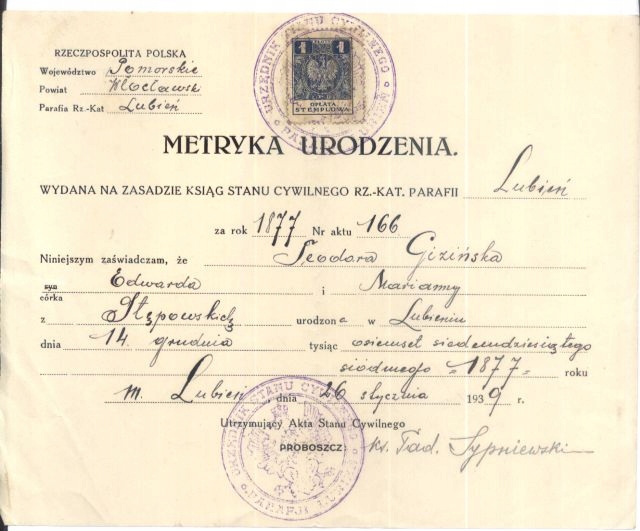 RZECZPOSPOLITA POLSKA
Województwo Pomorskie
Powiat Włocławski
Parafia Rz.-Kat Lubień
URZĘDNIK STANU CYWILNEGO
PARAFJI LUBIEŃ
1 1
OPŁATA
STEMPLOWA
METRYKA URODZENIA.
WYDANA NA ZASADZIE KSIĄG STANU CYWILNEGO RZ.-KAT. PARAFII Lubień
za rok 1877 Nr aktu 166
Niniejszym zaświadczam, że Teodora Gizińska
syn Edwarda i Marianny
córka
z Stępowskich urodzona w Lubieniu
dnia 14 grudnia tysiąc osiemset siedemdziesiątego
siódmego "1877" roku
m. Lubień dnia 26 stycznia 1939 r.
Utrzymujący Akta Stanu Cywilnego
PROBOSZCZ: ks. Tad. Sypniewski
URZĘDNIK STANU CYWILNEGO
PARAFJI LUBIEŃ